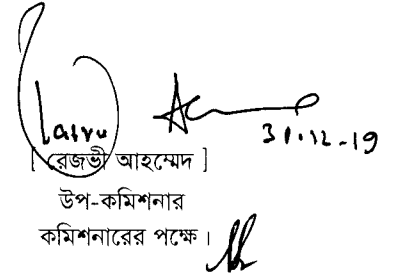 31.12.19
[ রেজভী আহম্মেদ ]
উপ-কমিশনার
কমিশনারের পক্ষে।